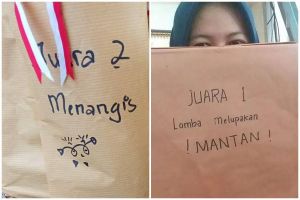 Juara 2
Menangis
JUARA 1
Lomba Melupakan
! MANTAN !